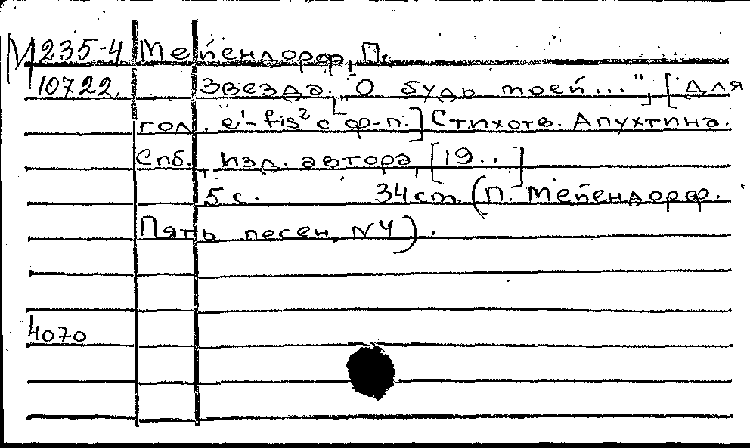 М235-4 Мейендорф, П.
10722. Звезда. "О будь моей...", [Для
гол. e¹-fis² с ф-п.] Стихотв. Апухтина.
Спб., изд. автора, [19..]
5 с. 34 cm. (П. Мейендорф.
Пять песен, N4).
4070